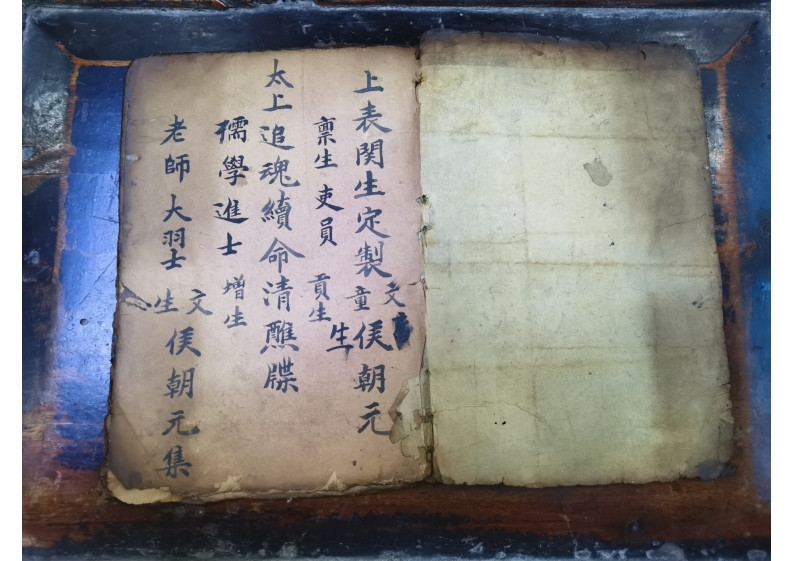 上表関生定製 文童生 侯朝元
禀生 吏員 貢生
太上追魂續命清醮牒
孺學進士 增生
老師大 文生 侯朝元集